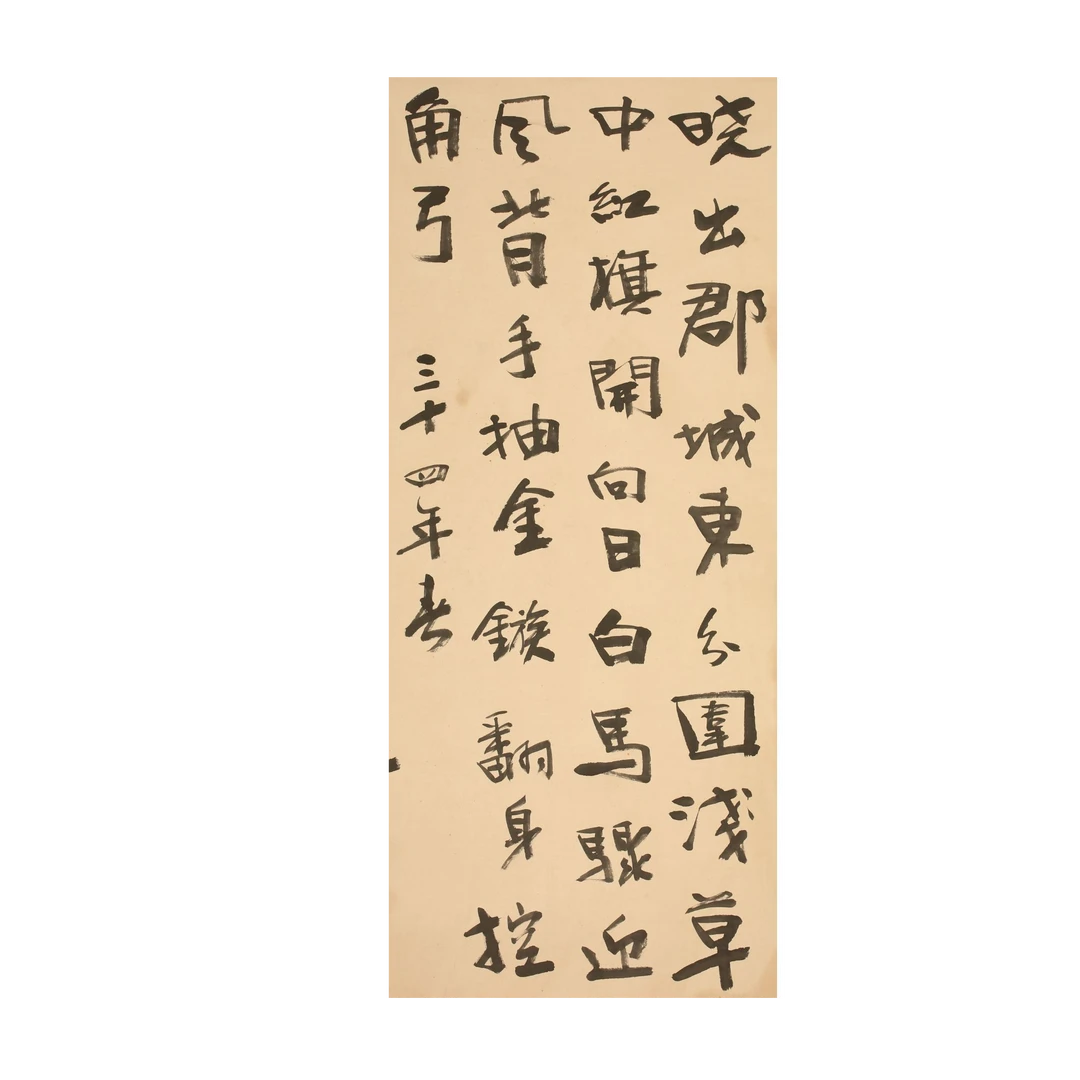 晓出郡城東分圍淺草
中紅旗開向日白馬驟迎
風背手抽金鏃翻身控
角弓 三十四年春